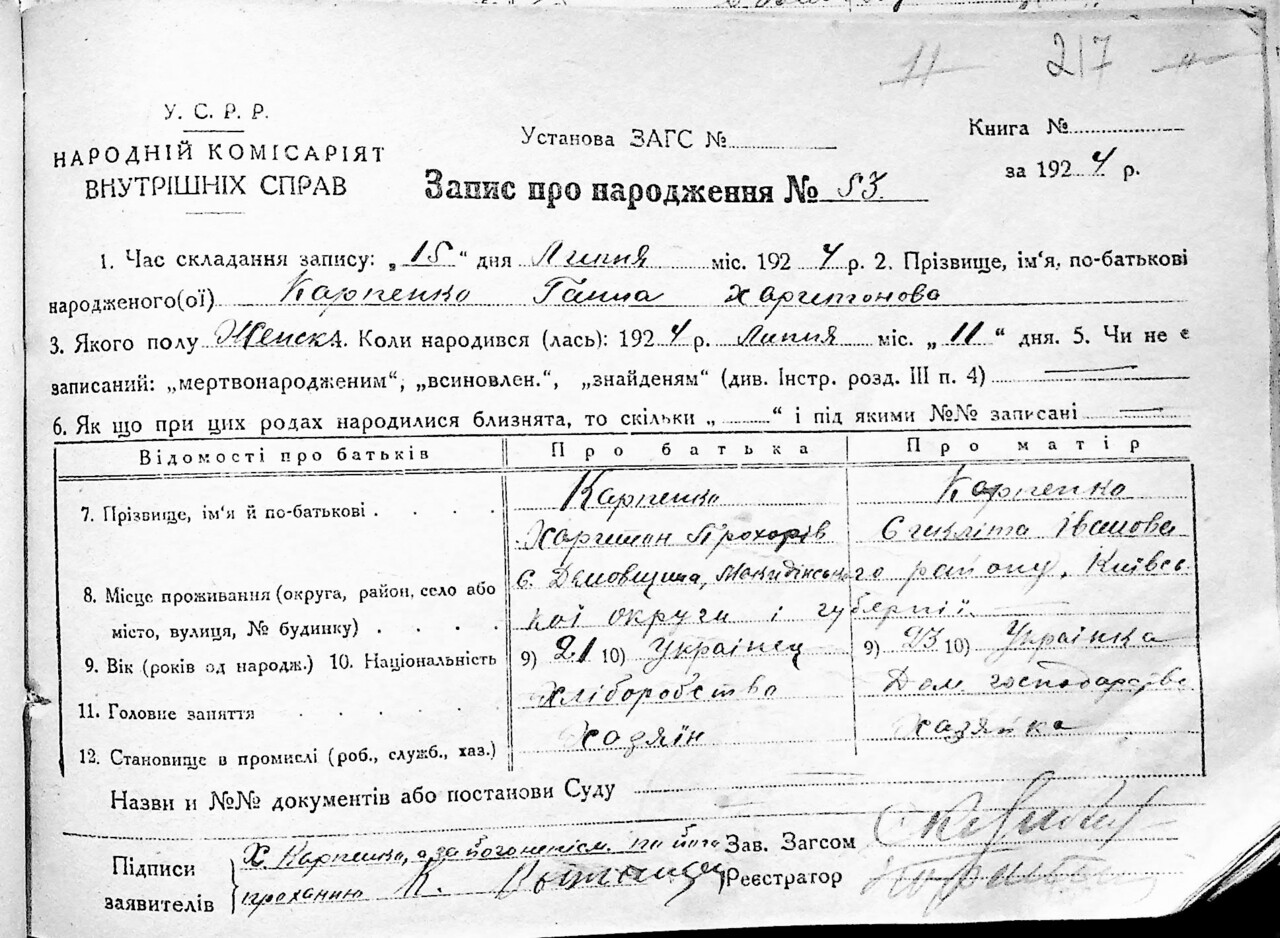 217
У. С. Р. Р.
НАРОДНІЙ КОМІСАРІЯТ
ВНУТРІШНІХ СПРАВ
Установа ЗАГС №
Книга №
за 1924 р.
Запис про народження № 83.
1. Час складання запису: „15“ дня Липня міс. 1924 р. 2. Прізвище, ім'я, по-батькові
народженого(ої) Карпенко Ганна Харитонова
3. Якого полу Женск. 4. Коли народився (лась): 1924 р. Липня міс. „11“ дня. 5. Чи не є
записаний: „мертвонародженим“, „всиновлен.“, „знайденям“ (див. Інстр. розд. III п. 4)
6. Як що при цих родах народилися близнята, то скільки „ “ і під якими №№ записані
Відомості про батьків Про батька Про матір
7. Прізвище, ім'я й по-батькові . . . . Карпенко Карпенко
Харитон Прохорів Іванова
8. Місце проживання (округа, район, село або с. Макидінського району, Київсь
місто, вулиця, № будинку) . . . . кої округи і губернії.
9. Вік (років од народж.) 10. Національність 9) 21 10) Українец 9) 23 10) Українка
11. Головне заняття . . . . . Хліборобство Дом. господарство
12. Становище в промислі (роб., служб., хаз.) Хазяїн Хазяйка
Назви и №№ документів або постанови Суду
Підписи
заявителів
Х. Карпенко, а за його неписм. по його
проханню К.
Зав. Загсом
Реєстратор